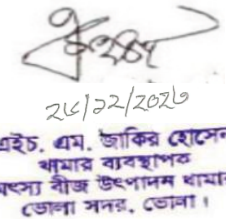 ২৮/১২/২০২৩
এইচ. এম. জাকির হোসেন
খামার ব্যবস্থাপক
মৎস্য বীজ উৎপাদন খামার
ভোলা সদর, ভোলা।